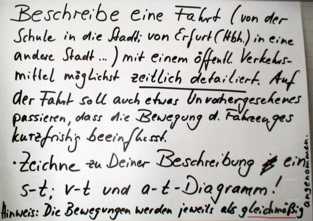 Beschreibe eine Fahrt (von der
Schule in die Stadt; von Erfurt (Hbh.) in eine
andere Stadt...) mit einem öffentl. Verkehrs-
mittel möglichst zeitlich detailiert. Auf
der Fahrt soll auch etwas Unvorhergesehenes
passieren, dass die Bewegung d. Fahrzeuges
kurzfristig beeinflusst.
· Zeichne zu Deiner Beschreibung ein
s-t; v-t und a-t-Diagramm!
Hinweis: Die Bewegungen werden jeweils als gleichmäßig
angenommen.